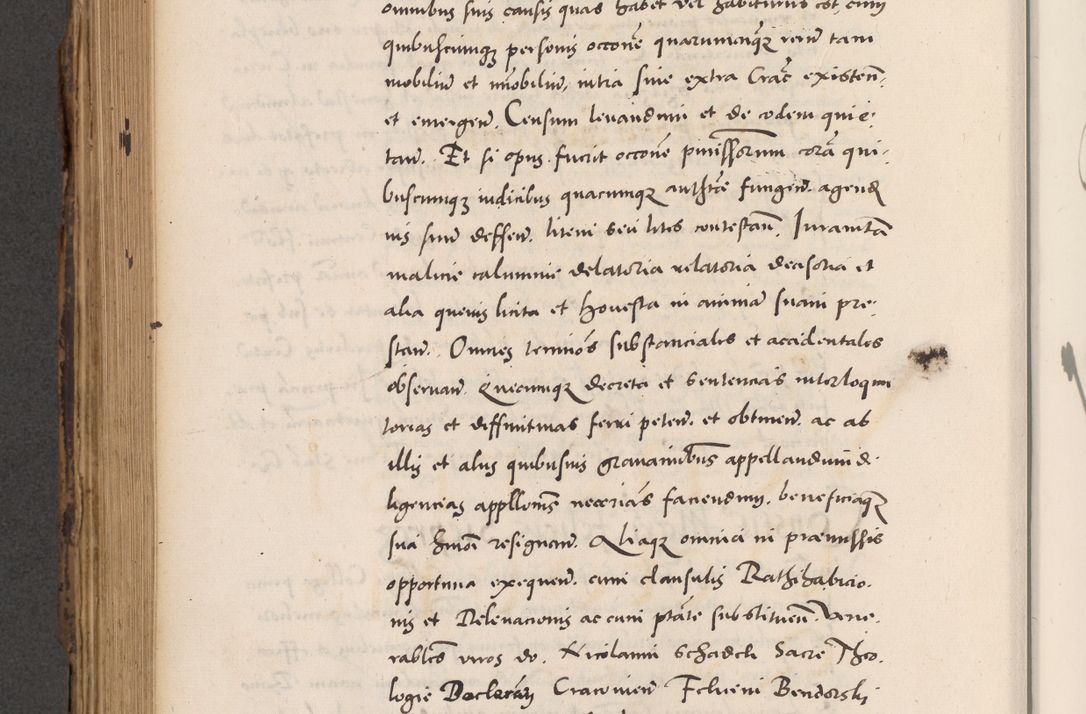 omnibus suis causis quas habet vel habiturus est, cum
quibuscumqȝ personis occone quarumcunqȝ rerum tam
mobilium et immobilium, intra sive extra Crac existen:
et emergen. Censum levandum et de eodem quie:
tan. Et si opus fuerit occone pmissorum cora qui:
buscumqȝ iudicibus quacumqȝ authte fungen. agend
eis suum deffen. litem seu lites contestan. Iuramtu
malicie calumnie delatoria relatoria decisoria et
alia quevis licita et honesta in animam suam pre:
stan. Omnes terminos substanciales et accidentales
observan. Quecumqȝ decreta et sentencias interloqu
torias et diffinitivas ferri peten. et obtinen. ac ab
illis et aliis quibusvis gravaminibus appellandum d.
ligencias appllonis necerias faciendum. beneficiaqȝ
sua hmoi resignan. Aliaqȝ omnia in praemissis
opportuna exequen. cum clausulis Rathihabicio.
nis et Relevacionis ac cum ptate substituen. Vene.
rables viros do. Nicolaum Schadek Sacre Theo.
logie Doctorem Cracovien Felicem Bendorski